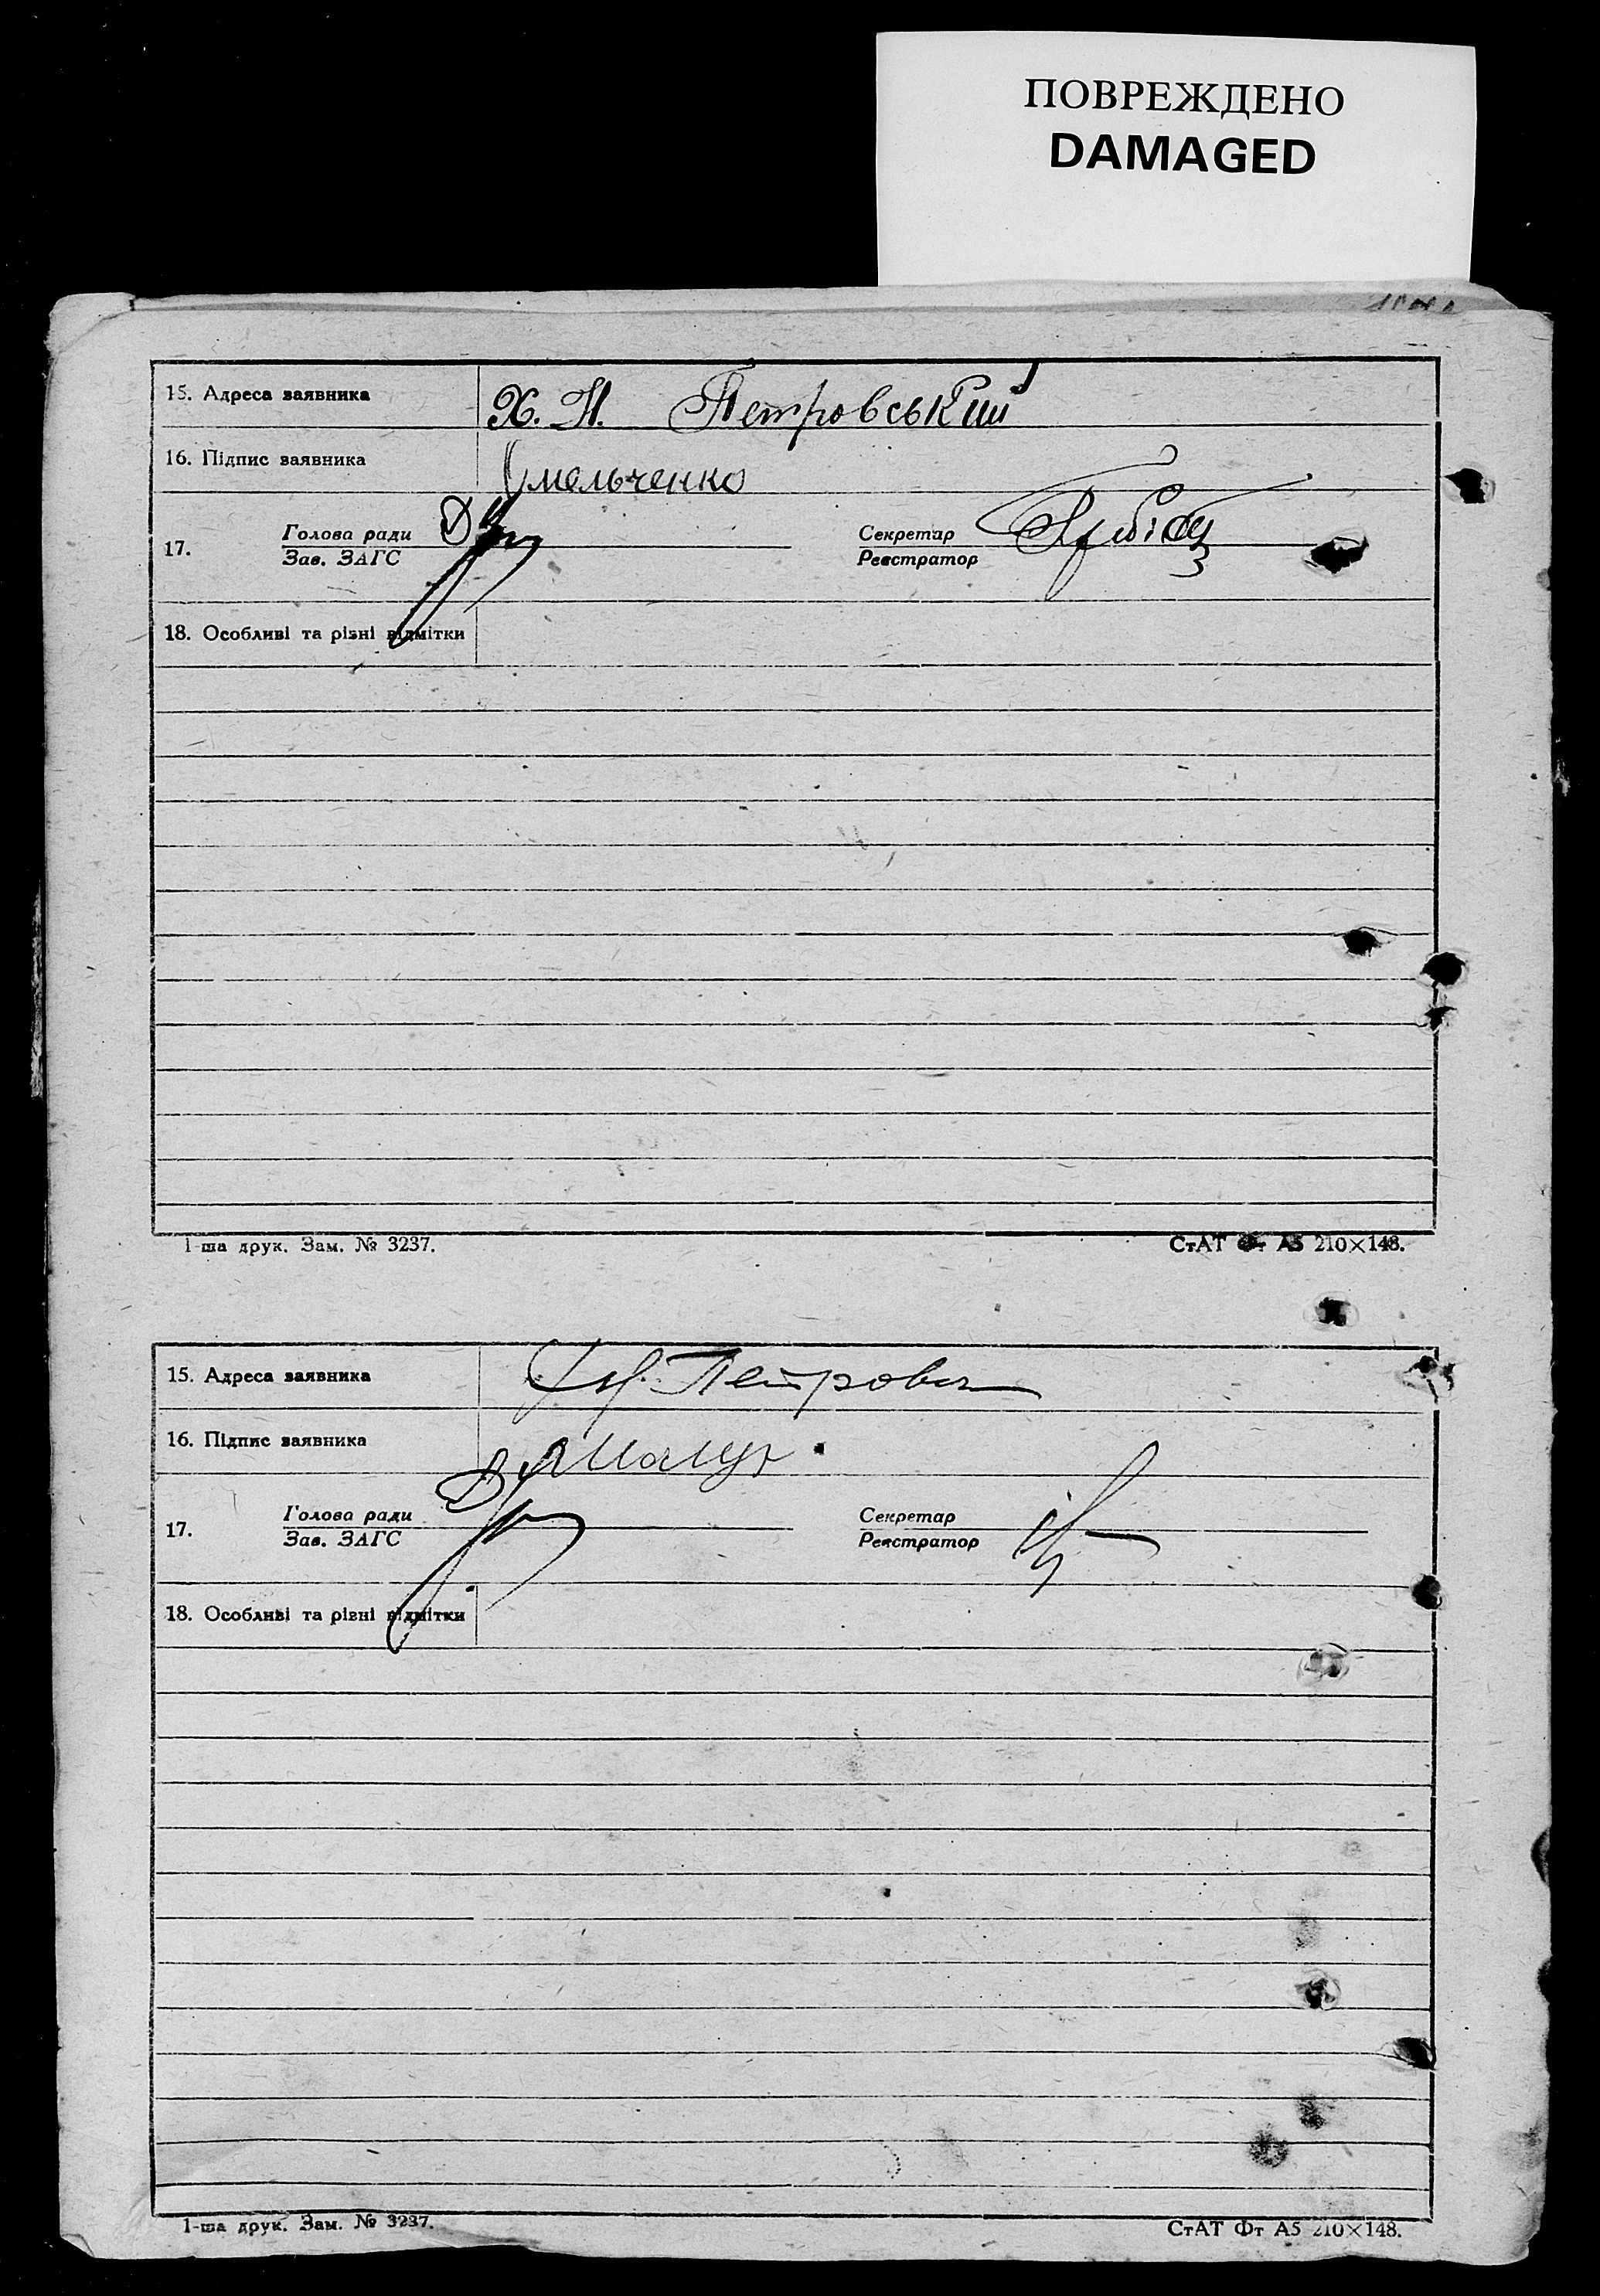 ПОВРЕЖДЕНО
DAMAGED
15. Адреса заявника Х. Н. Петровський
16. Підпис заявника Омельченко
17. Голова ради Секретар
Зав. ЗАГС Реєстратор
18. Особливі та різні відмітки
1-ша друк. Зам. № 3237. СтАТ Фт А5 210×148.
15. Адреса заявника
16. Підпис заявника
17. Голова ради Секретар
Зав. ЗАГС Реєстратор
18. Особливі та різні відмітки
1-ша друк. Зам. № 3237. СтАТ Фт А5 210×148.